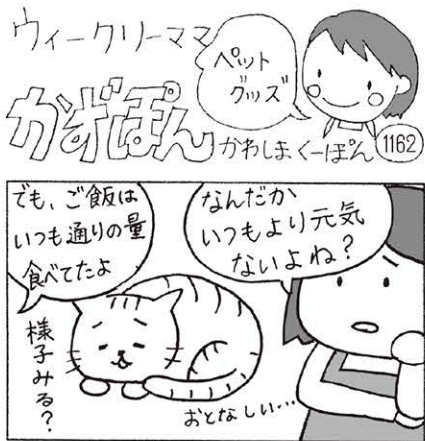 ウィークリーママ
ペット
グッズ
かずぽん
かわしまくーぽん
1162
なんだか
いつもより元気
ないよね?
でも、ご飯は
いつも通りの量
食べてたよ
様子みる?
おとなしい…